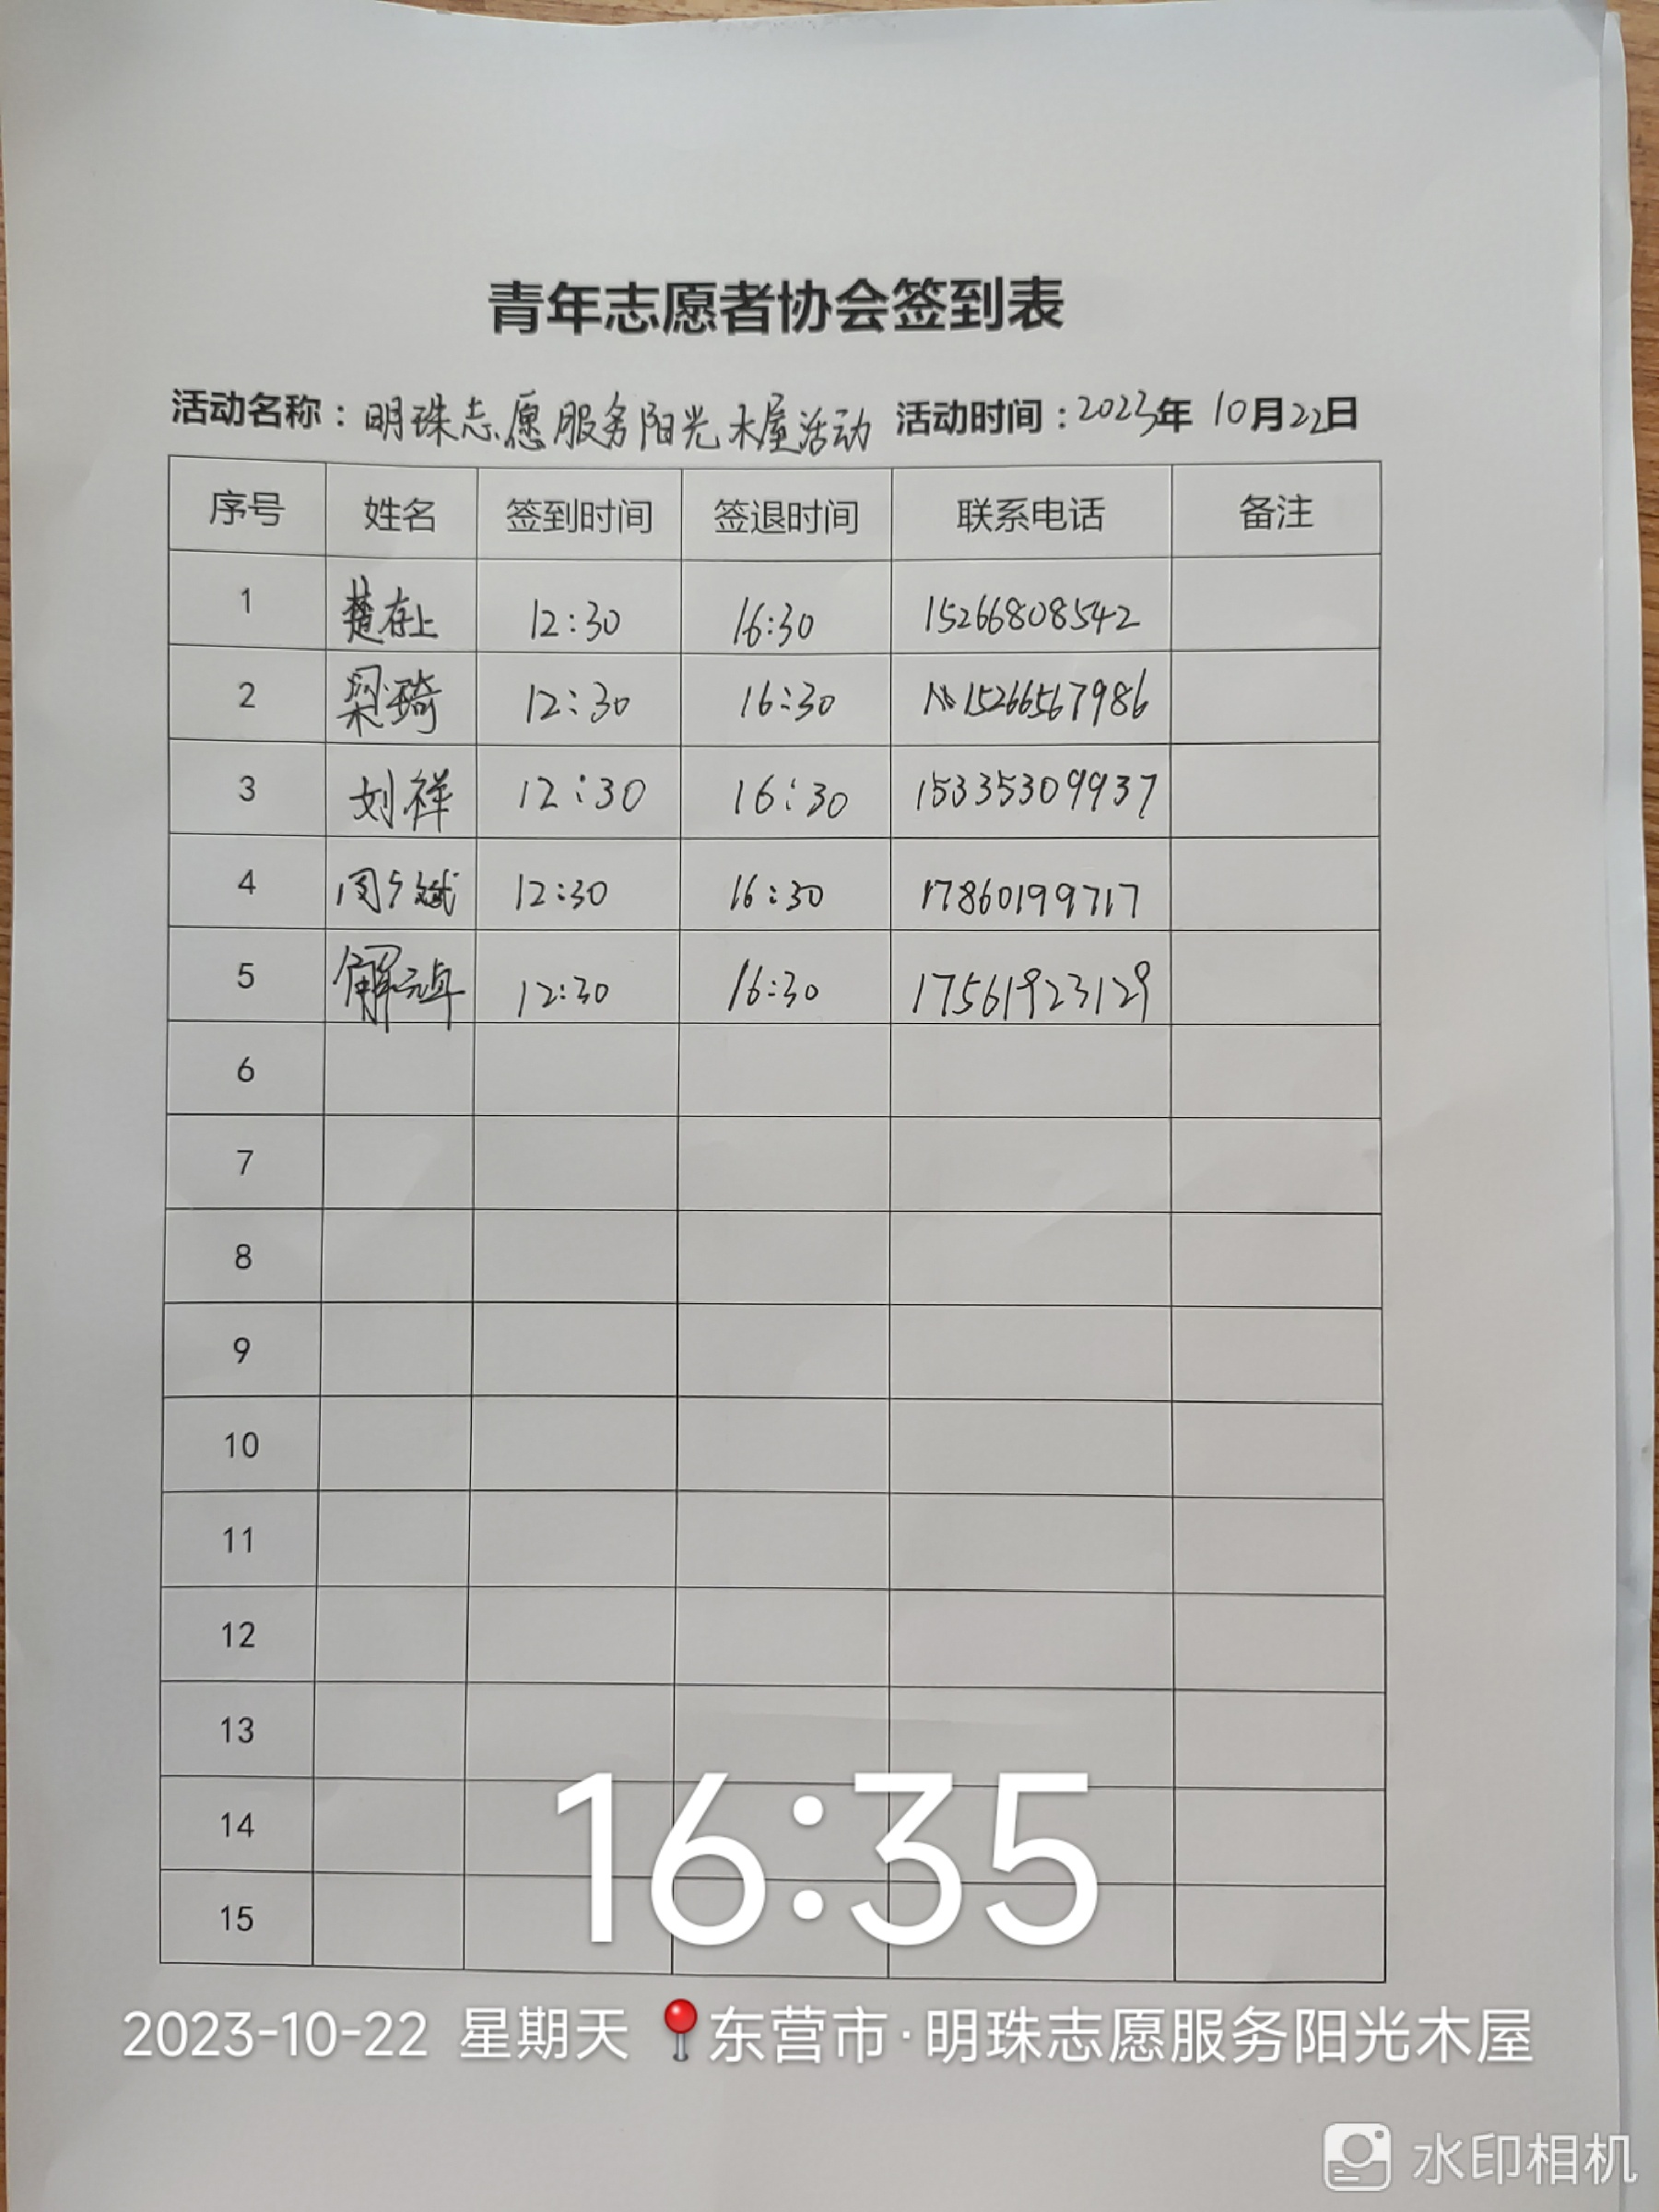 青年志愿者协会签到表
活动名称：明珠志愿服务阳光木屋活动 活动时间：2023年 10月22日
序号 姓名 签到时间 签退时间 联系电话 备注
1 楚存上 12:30 16:30 15266808542
2 梁琦 12:30 16:30 15266567986
3 刘祥 12:30 16:30 15335309937
4 12:30 16:30 17860199717
5 12:30 16:30 17561923129
6
7
8
9
10
11
12
13
14
15
16:35
2023-10-22 星期天 东营市·明珠志愿服务阳光木屋
水印相机